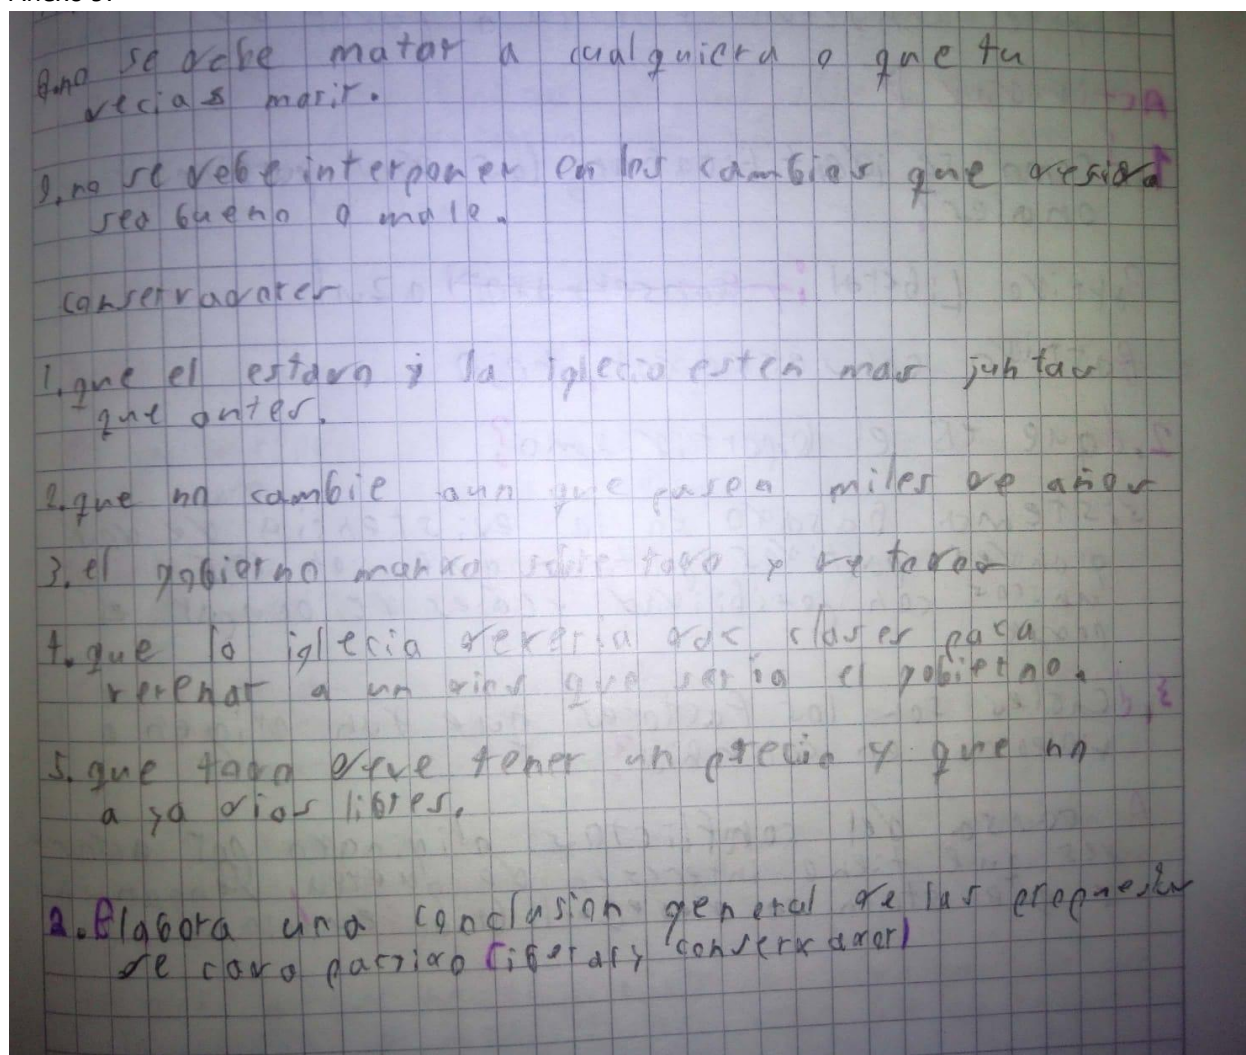 8.no se debe matar a cualquiera o que tu
decidas morir.
9. no se debe interponer en los cambios que desida
sea bueno o malo.
conservadores
1. que el estado y la iglecia esten mas juntas
que antes.
2. que no cambie aun que pasen miles de años
3. el gobierno manda sobre todo y de todos
4. que la iglecia deveria dar clases para
a un dios que seria el gobierno.
5. que todo deve tener un precio y que no
a ya dias libres.
2. Elabora una conclusion general de las propuestas
de cada partido (liberal y conservador)